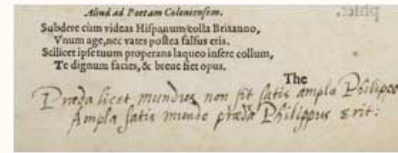 Aliud ad Poetam Coloniensem.
Subdere cùm videas Hispanum colla Britanno,
Vnum age, nec vates postea falsus eris.
Scilicet ipse tuum properans laqueo insere collum,
Te dignum facies, & breue fiet opus.
The
Præda licet mundus non sit satis ampla Philippo
Ampla satis mundo præda Philippus erit: